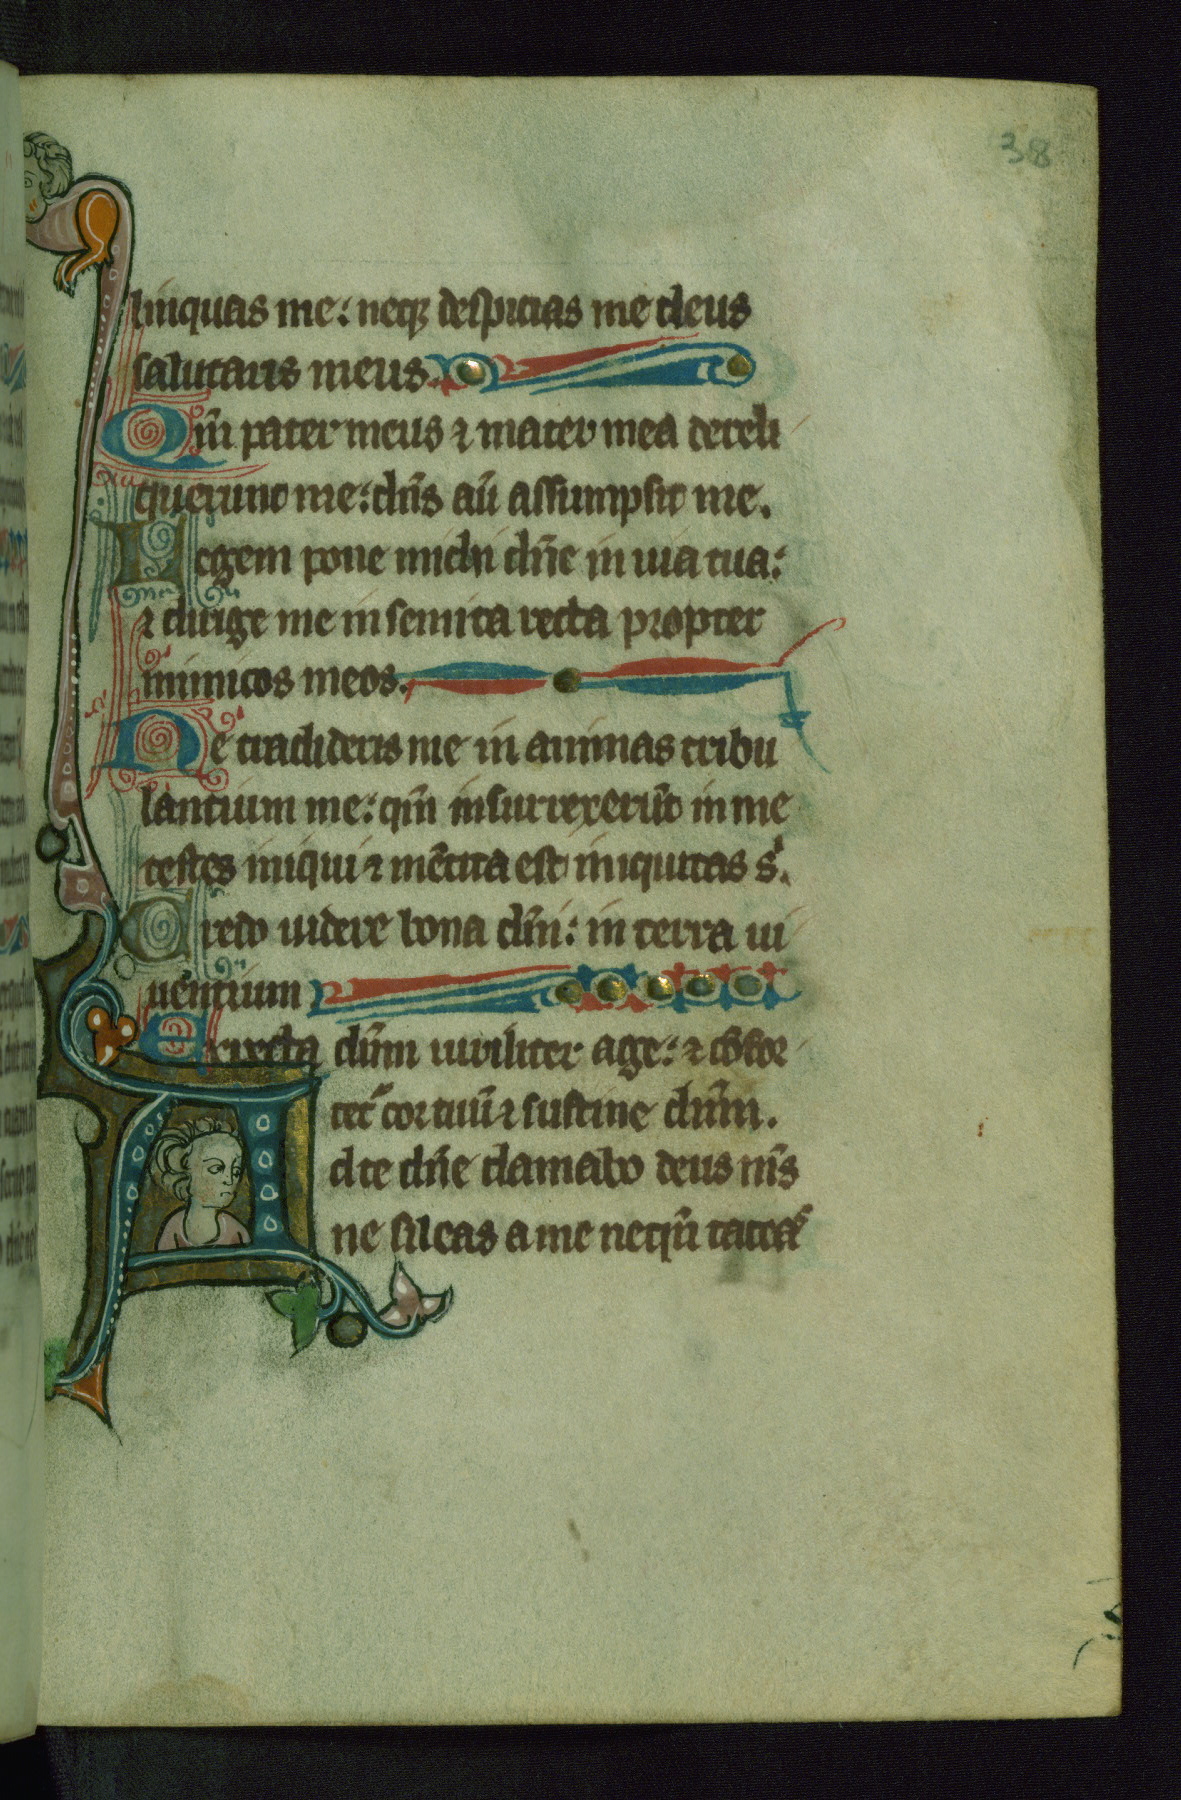 38
linquas me: neq; despicias me deus
salutaris meus.
Qm̄ pater meus ⁊ mater mea dereli
querunt me: dn̄s aū assumpsit me.
Legem pone michi dn̄e in uia tua:
⁊ dirige me in semita recta propter
inimicos meos.
Ne tradideris me in animas tribu
lantium me: qm̄ insurrexerūt in me
testes iniqui ⁊ mētita est iniquitas s'.
Credo uidere bona dn̄i: in terra ui
uentium
Expecta dn̄m uiriliter age: ⁊ cōfor
tet' cor tuū ⁊ sustine dn̄m.
Ad te dn̄e clamabo deus m̄s
ne sileas a me neqn̄ taceas